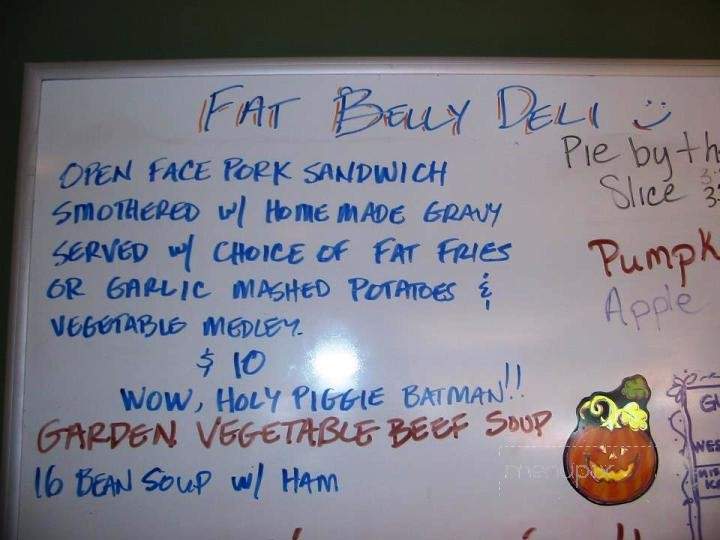 FAT BELLY DELI
OPEN FACE PORK SANDWICH
SMOTHERED w/ HOMEMADE GRAVY
SERVED w/ CHOICE OF FAT FRIES
OR GARLIC MASHED POTATOES &
VEGETABLE MEDLEY.
$ 10
WOW, HOLY PIGGIE BATMAN!!
GARDEN VEGETABLE BEEF SOUP
16 BEAN SOUP w/ HAM
Pie by th
Slice
Pumpk
Apple
menupix